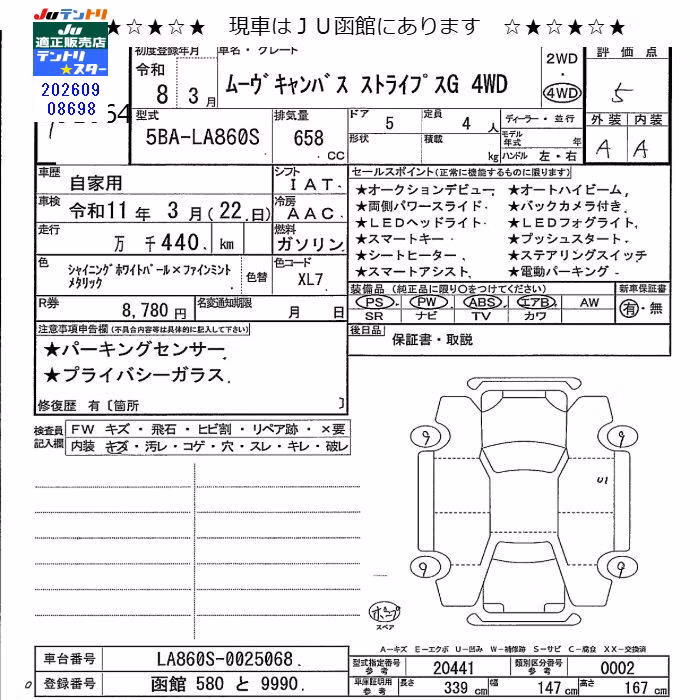 Juテントリ ☆★☆★☆★ 現車はＪＵ函館にあります ☆★☆★☆★
JU
適正販売店
テントリ
★スター
202609
08698
初度登録年月
令和
8 3月
車名・グレード
ムーヴキャンバス ストライプスG 4WD
2WD
・
4WD
評価点
5
外装 内装
A A
型式
5BA-LA860S
排気量
658
CC
ドア 5
定員 4 人
形状
積載 kg
ディーラー・並行
モデル年式 年
ハンドル 左・右
車歴 自家用
シフト IAT
車検 令和11年 3月(22日)
冷房 AAC
走行 万 千440 km
燃料 ガソリン
色 シャイニングホワイトパール×ファインミントメタリック
色替
色コード XL7
R券 8,780円
名変通知期限 月 日
セールスポイント(正常に機能するものに限ります)
★オークションデビュー ★オートハイビーム
★両側パワースライド ★バックカメラ付き
★LEDヘッドライト ★LEDフォグライト
★スマートキー ★プッシュスタート
★シートヒーター ★ステアリングスイッチ
★スマートアシスト ★電動パーキング
装備品(純正品に限り○をつけてください)
PS PW ABS エアB AW
SR ナビ TV カワ
新車保証書
有・無
後日品
保証書・取説
注意事項申告欄(不具合内容等は具体的に記入して下さい)
★パーキングセンサー
★プライバシーガラス
修復歴 有〔箇所 〕
検査員記入欄
FW キズ・飛石・ヒビ割・リペア跡・×要
内装 キズ・汚レ・コゲ・穴・スレ・キレ・破レ
9
9
U1
9
9
ホンプ
スペア
A－キズ E－エクボ U－凹み W－補修跡 S－サビ C－腐食 XX－交換済
車台番号 LA860S-0025068
登録番号 函館 580 と 9990
型式指定番号 参考 20441
類別区分番号 参考 0002
車庫証明用 参考 長さ 339 cm 幅 147 cm 高さ 167 cm